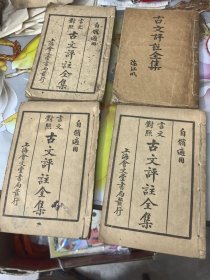 自修適用
言文對照
古文評註全集
上海會文堂書局發行
古文評註全集
自修適用
言文對照
古文評註全集
上海會文堂書局發行
自修適用
言文對照
古文評註全集
上海會文堂書局發行